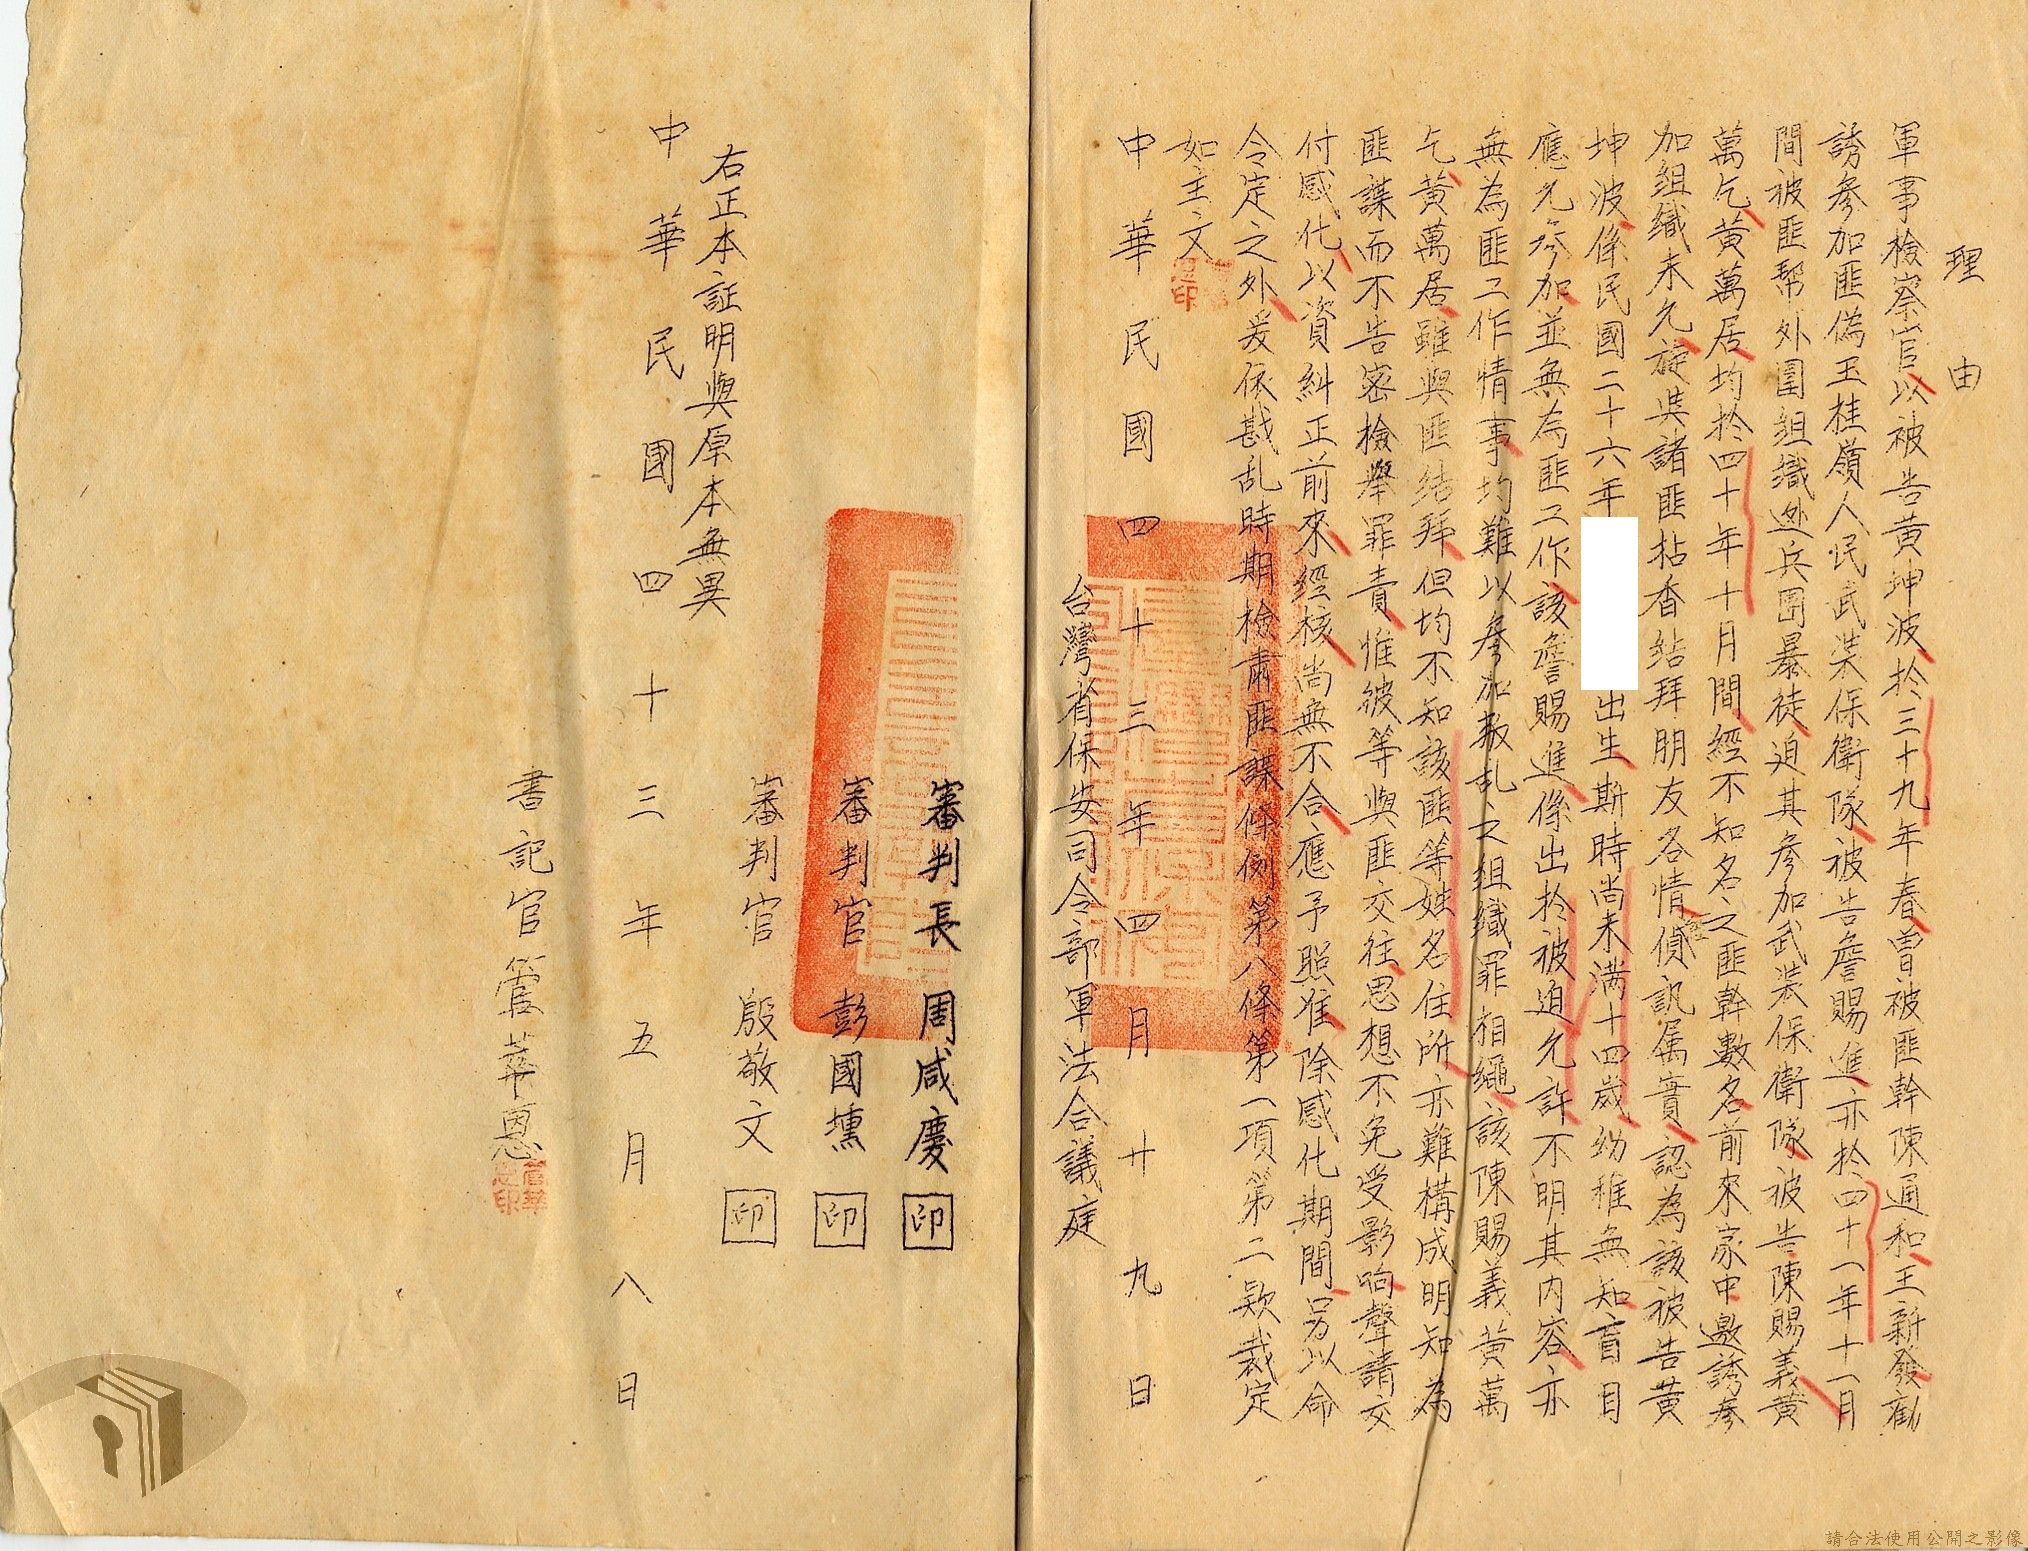 理由
軍事檢察官以被告黃坤波於三十九年春曾被匪幹陳通和王新發勸
誘參加匪偽玉桂嶺人民武裝保衛隊被告詹賜進亦於四十一年十一月
間被匪幫外圍組織逃兵團暴徒迫其參加武裝保衛隊被告陳賜義黃
萬乞黃萬居均於四十年十月間經不知名之匪幹數名前來家中邀誘參
加組織未允旋與諸匪拈香結拜朋友各情經偵訊属實認為該被告黃
坤波係民國二十六年
出生斯時尚未满十四歲幼稚無知盲目
應允參加並無為匪工作該詹賜進係出於被迫允許不明其內容亦
無為匪工作情事均難以參加叛乱之組織罪相繩該陳賜義黃萬
乞黃萬居雖與匪結拜但均不知該匪等姓名住所亦難構成明知為
匪諜而不告密檢舉罪責惟彼等與匪交往思想不免受影响聲請交
付感化以資糾正前來經核尚無不合應予照准除感化期間另以命
令定之外爰依戡乱時期檢肅匪諜條例第八條第一項第二款裁定
如主文
中華民國四十三年四月廿九日
台灣省保安司令部軍法合議庭
審判長 周咸慶 印
審判官 彭國壎 印
審判官 殷敬文 印
右正本証明與原本無異
中華民國四十三年五月八日
書記官管華恩
請合法使用公開之影像